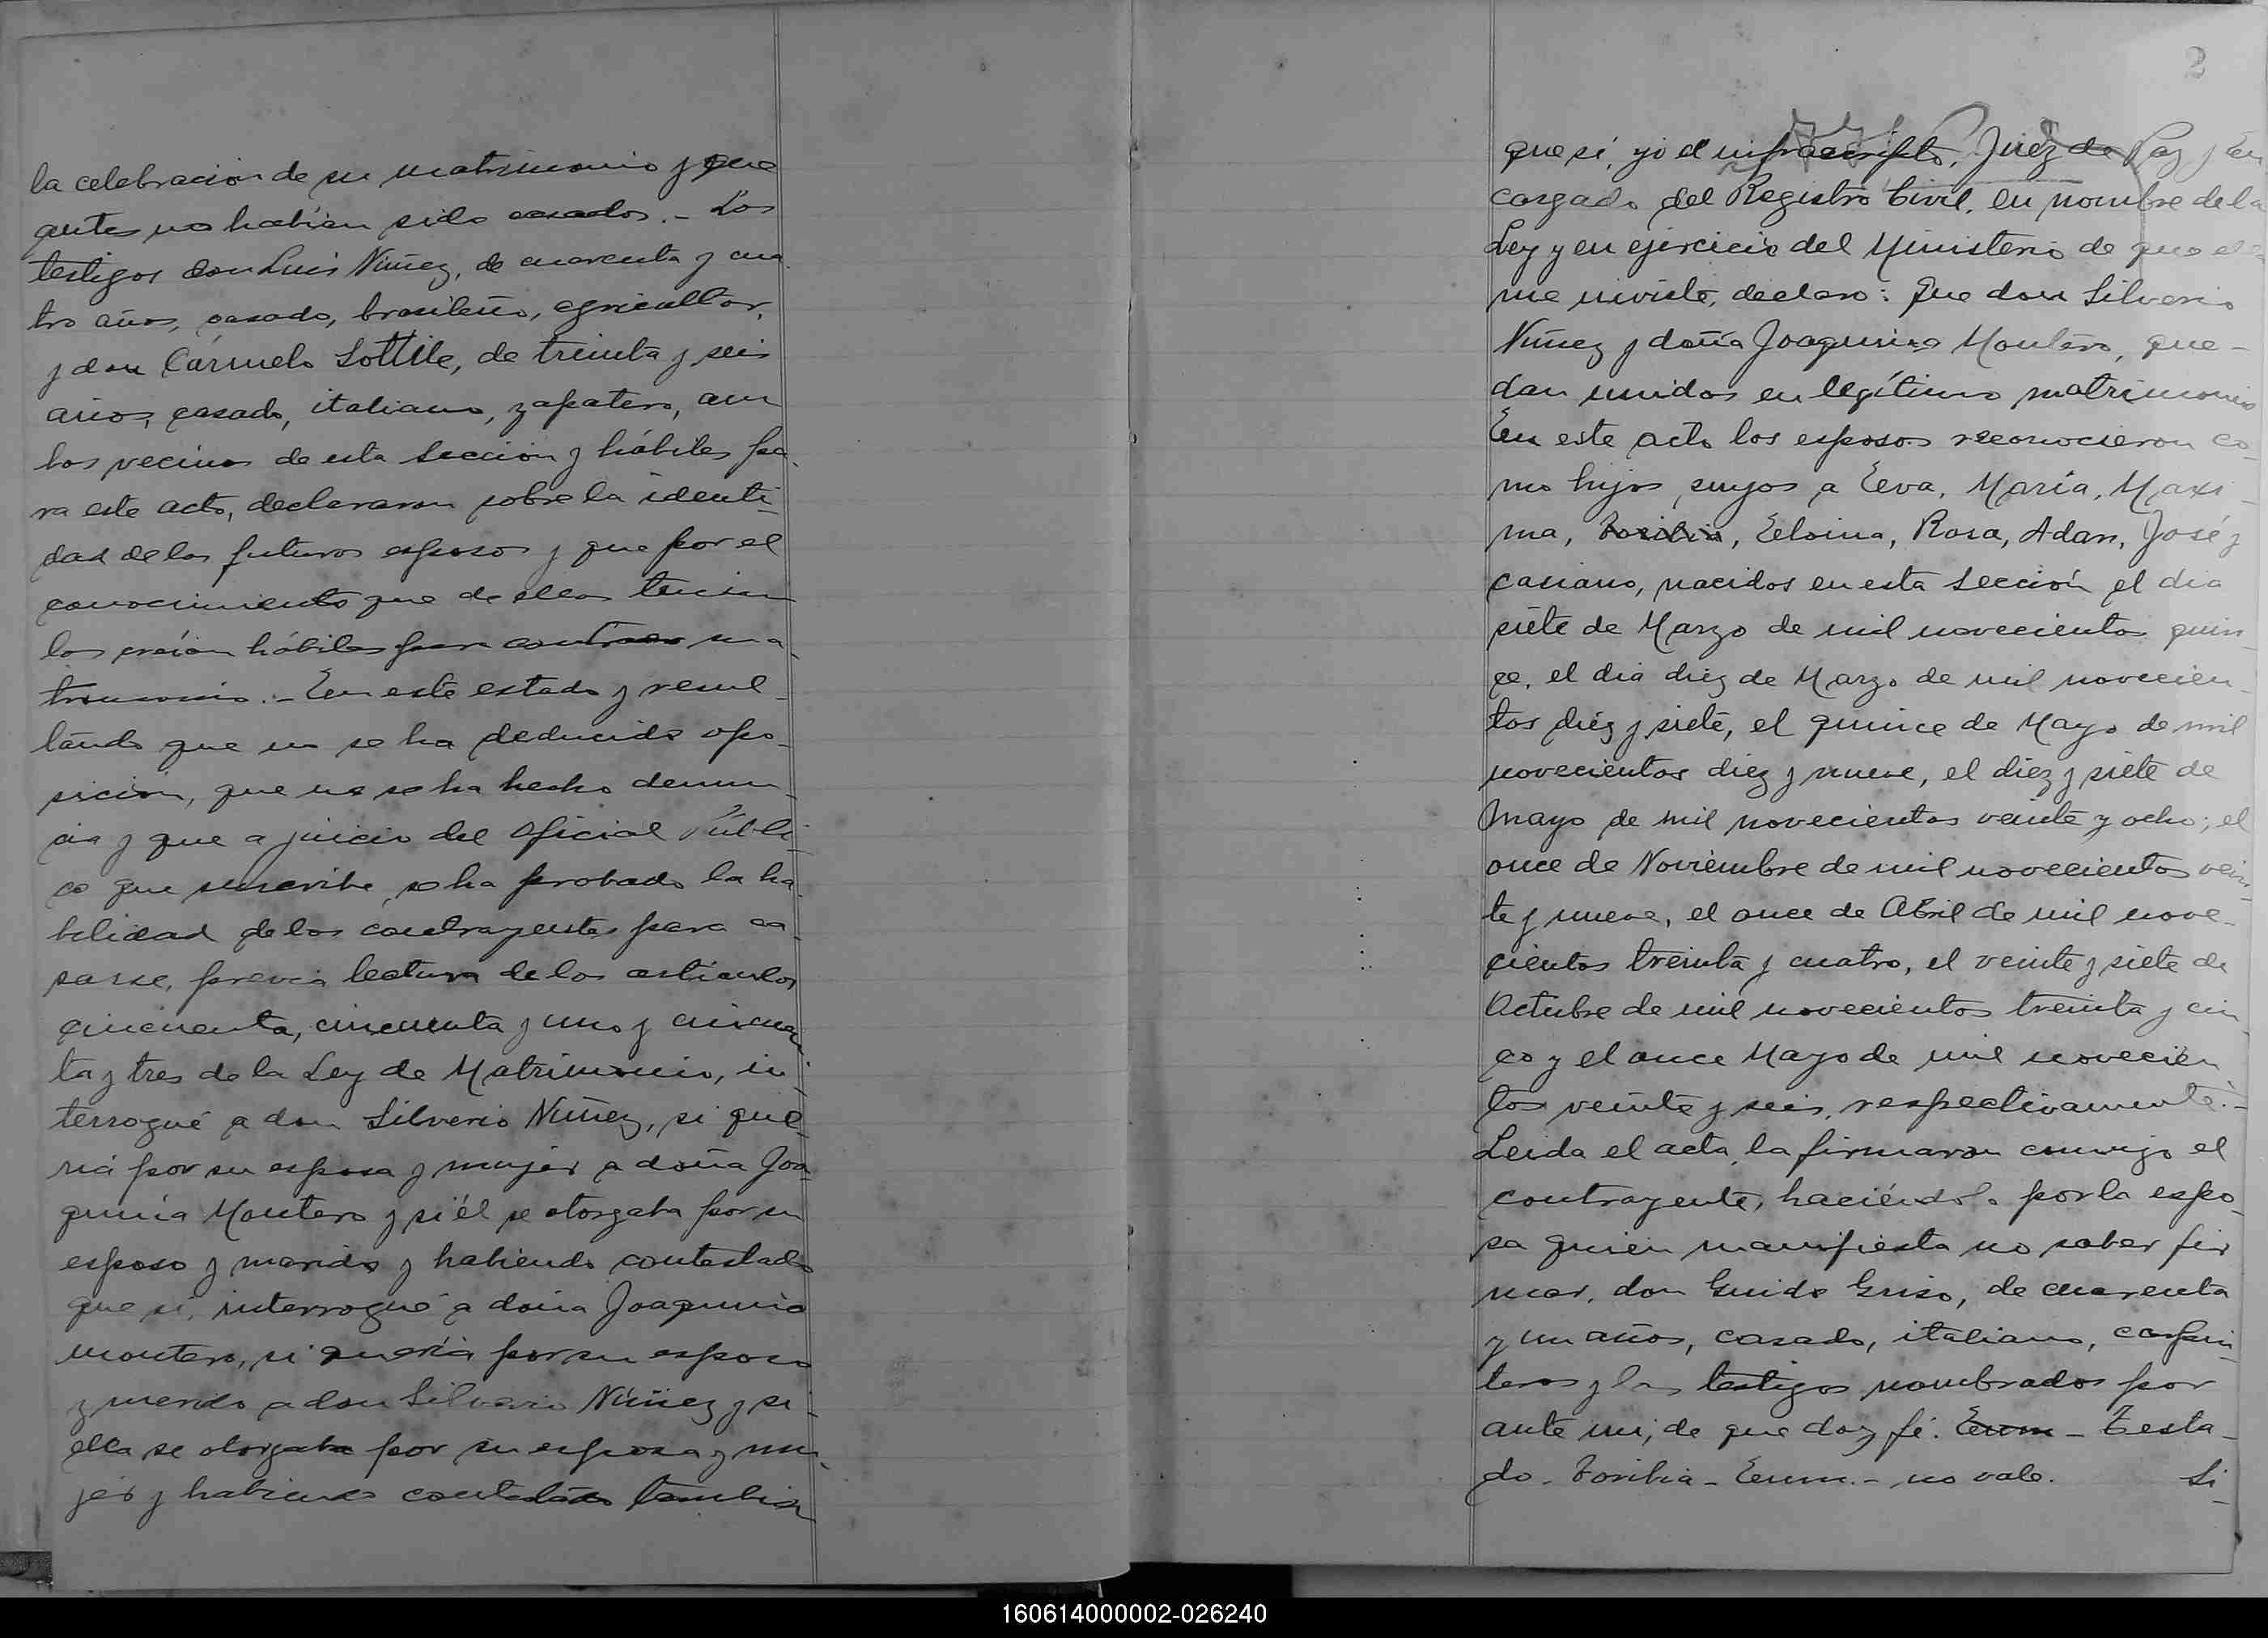 la celebracion de su matrimonio y que
antes no habian sido casados.- Los
testigos don Luis Núñez, de cuarenta y cua
tro años, casado, brasileño, agricultor,
y don Cármelo Sottile, de treinta y seis
años, casado, italiano, zapatero, am
bos vecinos de esta Sección y hábiles pa-
ra este acto, declararon sobre la identi-
dad de los futuros esposos y que por el
conocimiento que de ellos tenian
los creían hábiles para contraer ma-
trimonio.- En este estado y resul-
tando que no se ha deducido opo-
sición, que no se ha hecho denun-
cia y que a juicio del Oficial Públi-
co que suscribe, se ha probado la ha-
bilidad de los contrayentes para ca-
sarse, previa lectura de los artículos
cincuenta, cincuenta y uno y cincuen
ta y tres de la Ley de Matrimonio, in-
terrogué a don Silverio Núñez, si que-
ria por su esposa y mujer a doña Joa-
quina Montero y si él se otorgaba por su
esposo y marido y habiendo contestado
que si, interrogué a doña Joaquina
Montero, si quería por su esposo
y marido a don Silverio Núñez y si-
ella se otorgaba por su esposa y mu-
jer y habiendo contestado tambien
2
que si, yo el infrascripto, Juez de Paz y en
cargado del Registro Civil, en nombre de la
Ley y en ejercicio del Ministerio de que ella
me inviste, declaro: Que don Silverio
Núñez y doña Joaquina Montero, que-
dan unidos en legítimo matrimonio
En este acto los esposos reconocieron co-
mo hijos suyos a Eva, María, Maxi-
ma, Eloina, Rosa, Adan, José y
Casiano, nacidos en esta Sección el dia
siete de Marzo de mil novecientos quin-
ce, el dia diez de Marzo de mil novecien-
tos diez y siete, el quince de Mayo de mil
novecientos diez y nueve, el diez y siete de
Mayo de mil novecientos veinte y ocho; el
once de Noviembre de mil novecientos vein-
te y nueve, el once de Abril de mil nove-
cientos treinta y cuatro, el veinte y siete de
Octubre de mil novecientos treinta y cin-
co y el once Mayo de mil novecien
tos veinte y seis, respectivamente.-
Leida el acta, la firmaron conmigo el
contrayente, haciéndolo por la espo-
sa quien manifiesta no saber fir
mar, don Guido Griso, de cuarenta
y un años, casado, italiano, carpin-
tero y los testigos nombrados por
ante mi, de que doy fé. Enm - Testa-
do - Enm.- no vale. Si-
160614000002-026240